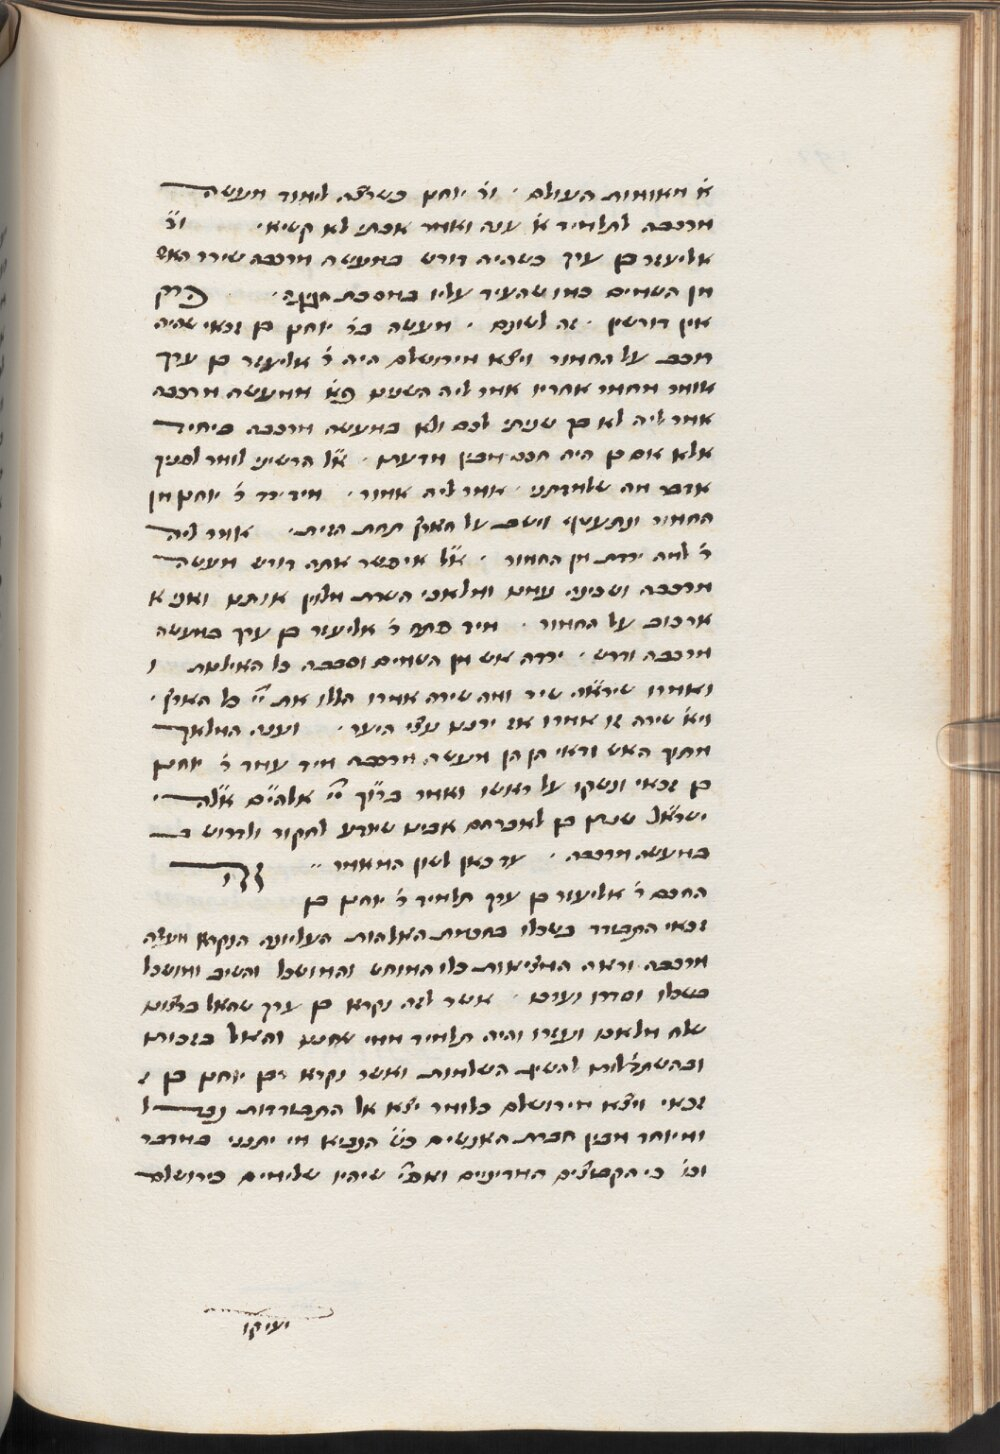 א׳ מאומות העולם · ור׳ יוחנן כשרצה לימוד מעשה
מרכבה לתלמיד א׳ ענה ואמר אכתי לא קשיאי · ור׳
אליעזר בן ערך כשהיה דורש במעשה מרכבה שירד האש
מן השמים כמו שהעיד עליו במסכת חגיגה · פרק
אין דורשין · זה לשונם · מעשה בר׳ יוחנן בן זכאי שהיה
רוכב על החמור ויצא מירושלם היה ר׳ אליעזר בן ערך
אמר ליה לא כך שניתי לכם ולא במעשה מרכבה ביחיד
אלא אם כן היה חכם מבין מדעתו · א״ל הרשיני לומר לפניך
אדבר מה שלמדתני · אמר ליה אמור · מיד ירד ר׳ יוחנן מן
החמור ונתעטף וישב על הארץ תחת הזית · אמר ליה
ר׳ למה ירדת מן החמור · א״ל איפשר אתה דורש מעשה
מרכבה ושכינה עמנו ומלאכי השרת מלוין אותנו ואני א
ארכוב על החמור · מיד פתח ר׳ אליעזר בן ערך במעשה
מרכבה ודרש · ירדה אש מן השמים וסבבה כל האילנות ו
ואמרו שירה ומה שירה אמרו הללו את יי׳ כל הארץ ·
וי״א שירה זו אמרו אז ירננו עצי היער · וענה המלאך
מתוך האש ודאי הן הן מעשה מרכבה מיד עמד ר׳ יוחנן
בן זכאי ונשקו על ראשו ואמר ברוך יי׳ אלהים אלהי
ישראל שנתן בן לאברהם אבינו שיודע לחקור ולדרוש ב
במעשה מרכבה · עד כאן לשון המאמר ··
החכם ר׳ אליעזר בן ערך תלמיד ר׳ יוחנן בן
זכאי התבודד בשכלו בחכמת האלהות העליונה הנקרא מעשה
מרכבה וראה המציאות כלו המוחש והמושכל והשיב ומושכל
בשכלו וסדרו וערכו · אשר לזה נקרא בן ערך שהאל ברצונו
שלח מלאכו ועזרו והיה תלמיד ממי שחננו האל בזכותו
ובהשתדלותו להשיג השלמות ואשר נקרא רבן יוחנן בן ז
זכאי ויצא מירושלם כלומר יצא אל התבודדות נבדל
ומיוחד מבין חברת האנשים כש׳ הנביא מי יתנני במדבר
וכו׳ כי הקבוצים המדיניים ואפי׳ שיהיו שלימים כירושלם
יעיקו